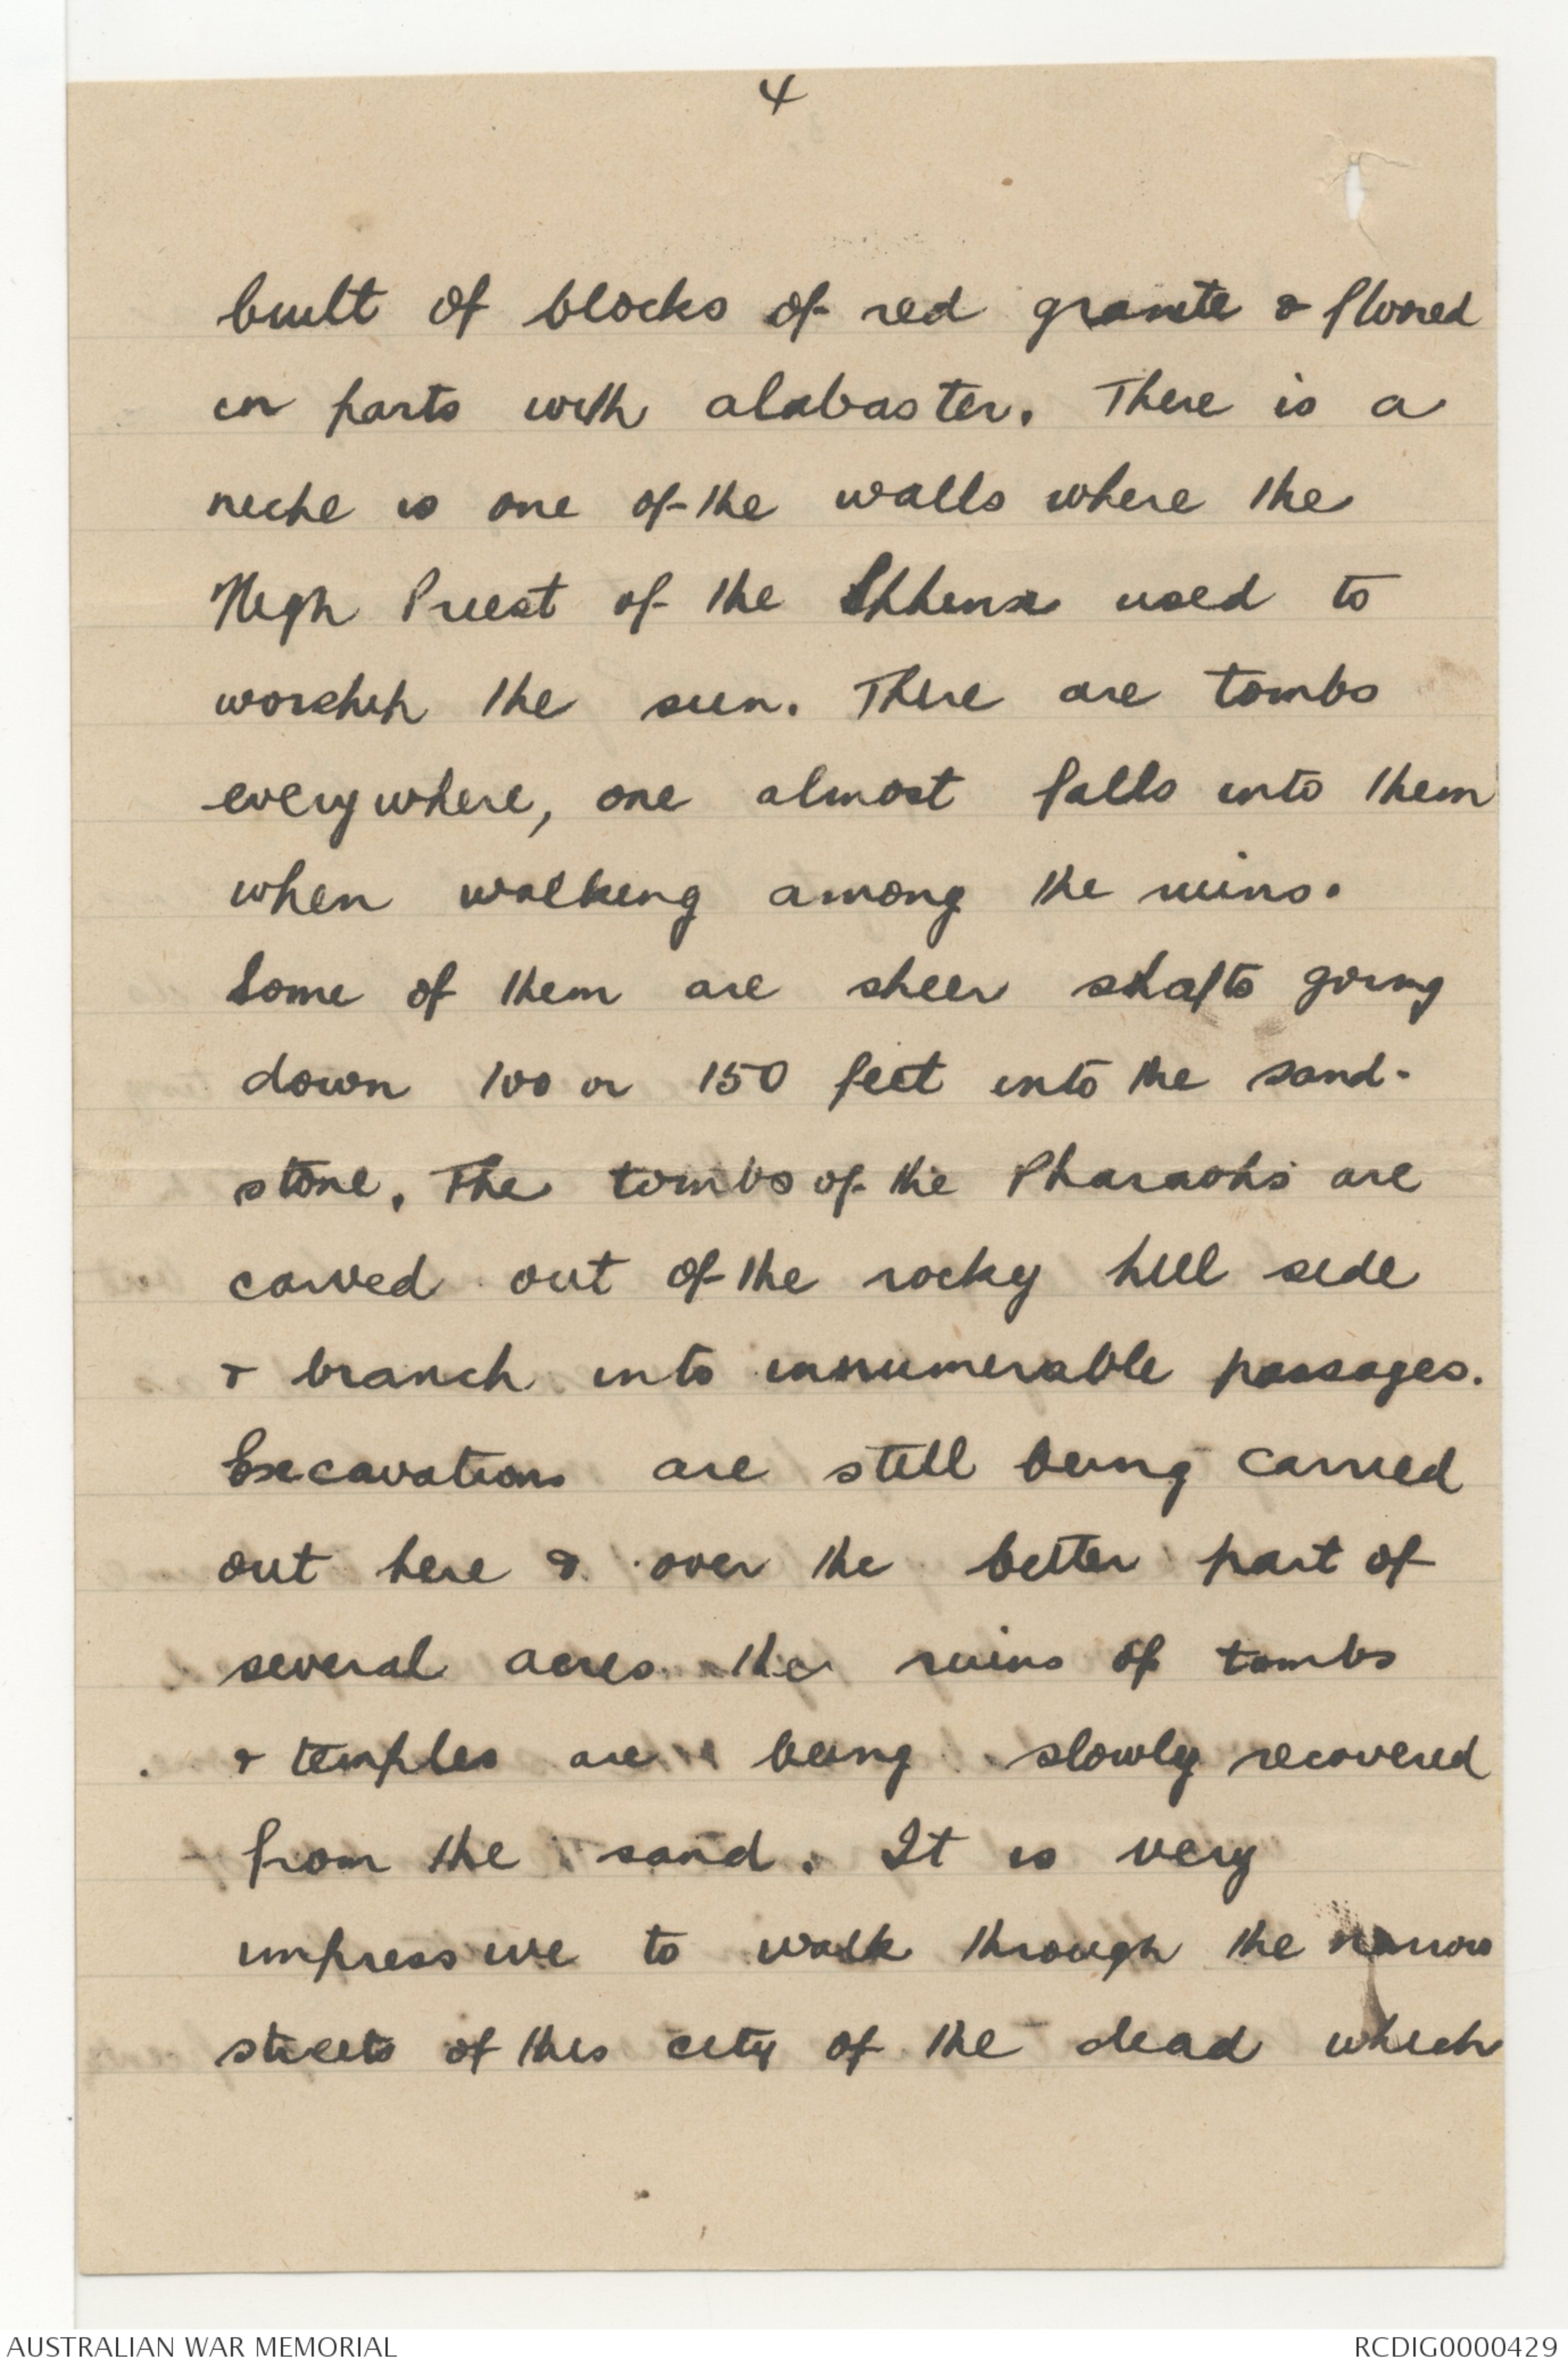 4
built of blocks of red granite & floored
in parts with alabaster. There is a
niche is one of the walls where the
High Priest of the Sphinx used to
worship the sun. There are tombs
everywhere, one almost falls into them
when walking among the ruins.
Some of them are sheer shafts going
down 100 or 150 feet into the sand-
stone. The tombs of the Pharaohs are
carved out of the rocky hill side
& branch into innumerable passages.
Excavations are still being carried
out here & over the better part of
several acres the ruins of tombs
& temples are being slowly recovered
from the sand. It is very
impressive to walk through the narrow
streets of this city of the dead which
AUSTRALIAN WAR MEMORIAL
RCDIG0000429